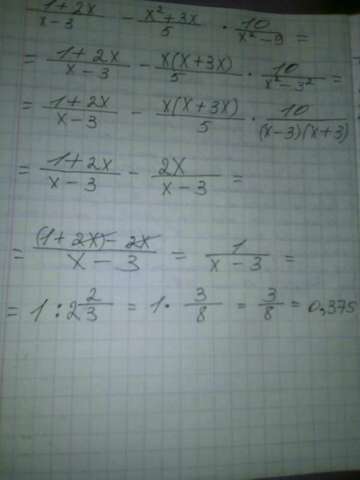 (1+2x)/(x-3) - (x²+3x)/5 · 10/(x²-9) =
= (1+2x)/(x-3) - x(x+3x)/5 · 10/(x²-3²) =
= (1+2x)/(x-3) - x(x+3x)/5 · 10/((x-3)(x+3))
= (1+2x)/(x-3) - 2x/(x-3) =
= ((1+2x)-2x)/(x-3) = 1/(x-3) =
= 1 : 2 2/3 = 1 · 3/8 = 3/8 = 0,375